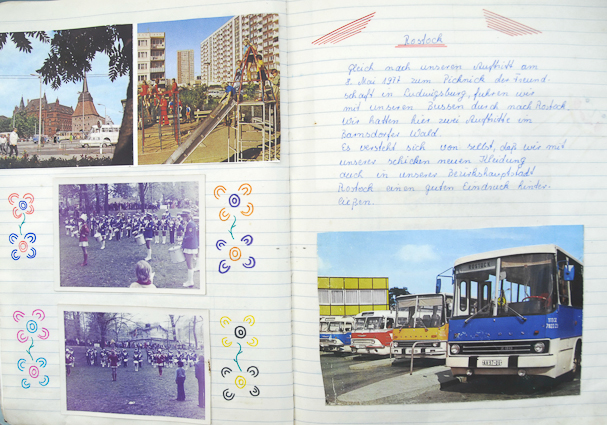 Rostock
Gleich nach unseren Auftritt am
8. Mai 1977 zum Picknick der Freund-
schaft in Ludwigsburg, fuhren wir
mit unseren Bussen durch nach Rostock.
Wir hatten hier zwei Auftritte im
Barnsdorfer Wald.
Es versteht sich von selbst, daß wir mit
unserer schicken neuen Kleidung
auch in unserer Bezirkshauptstadt
Rostock einen guten Eindruck hinter-
ließen.